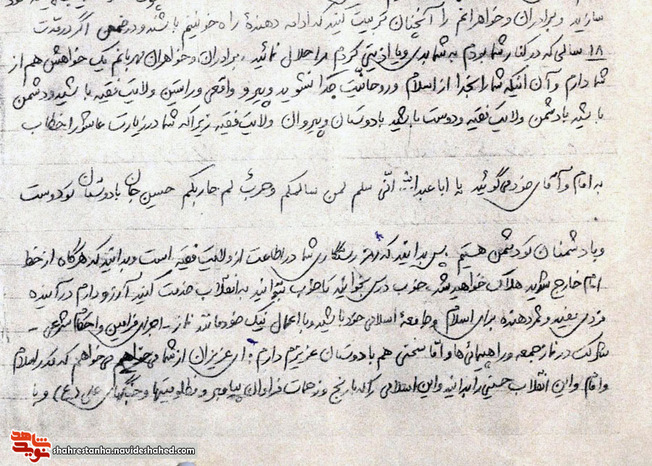 سازید و برادران و خواهرانم را آنچنان تربیت کنید که ادامه دهندهٔ راه خونینم باشند و در ضمن اگر در مدت
۱۸ سالی که در کنار شما بودم به شما بدی و یا اذیتی کردم مرا حلال نمائید. برادران و خواهران مهربانم یک خواهش هم از
شما دارم و آن اینکه شما را بخدا از اسلام و روحانیت جدا نشوید و پیرو واقعی و راستین ولایت فقیه باشید و دشمن
باشید با دشمن ولایت فقیه و دوست باشید با دوستان و پیروان ولایت فقیه زیرا که شما در زیارت عاشورا خطاب
به امام و آقای خود می‌گوئید یا اباعبدالله انّی سلم لمن سالمکم و حربٌ لم حاربکم حسین جان با دوستان تو دوست
و با دشمنان تو دشمن هستیم پس بدانید که رمز رستگاری شما در اطاعت از ولایت فقیه است و بدانید که هرگاه از خط
امام خارج شدید هلاک خواهید شد خوب درس بخوانید تا خوب بتوانید به انقلاب خدمت کنید آرزو دارم در آینده
فردی مفید و ثمر دهنده برای اسلام و جامعهٔ اسلامی خود باشید و با اعمال نیک خود مانند نماز - اجرای فرامین و احکام شرعی -
شرکت در نماز جمعه و راهپیمائی‌ها و اما سخنی هم با دوستان عزیزم دارم: ای عزیزان از شما می‌خواهم می‌خواهم که قدر اسلام
و امام و این انقلاب حسینی را بدانید و این اسلامی را که با رنج و زحمات فراوان پیامبر و مظلومیتها و جنگهای علی (ع) و با
شاهد
نوید
shahrestanha.navideshahed.com